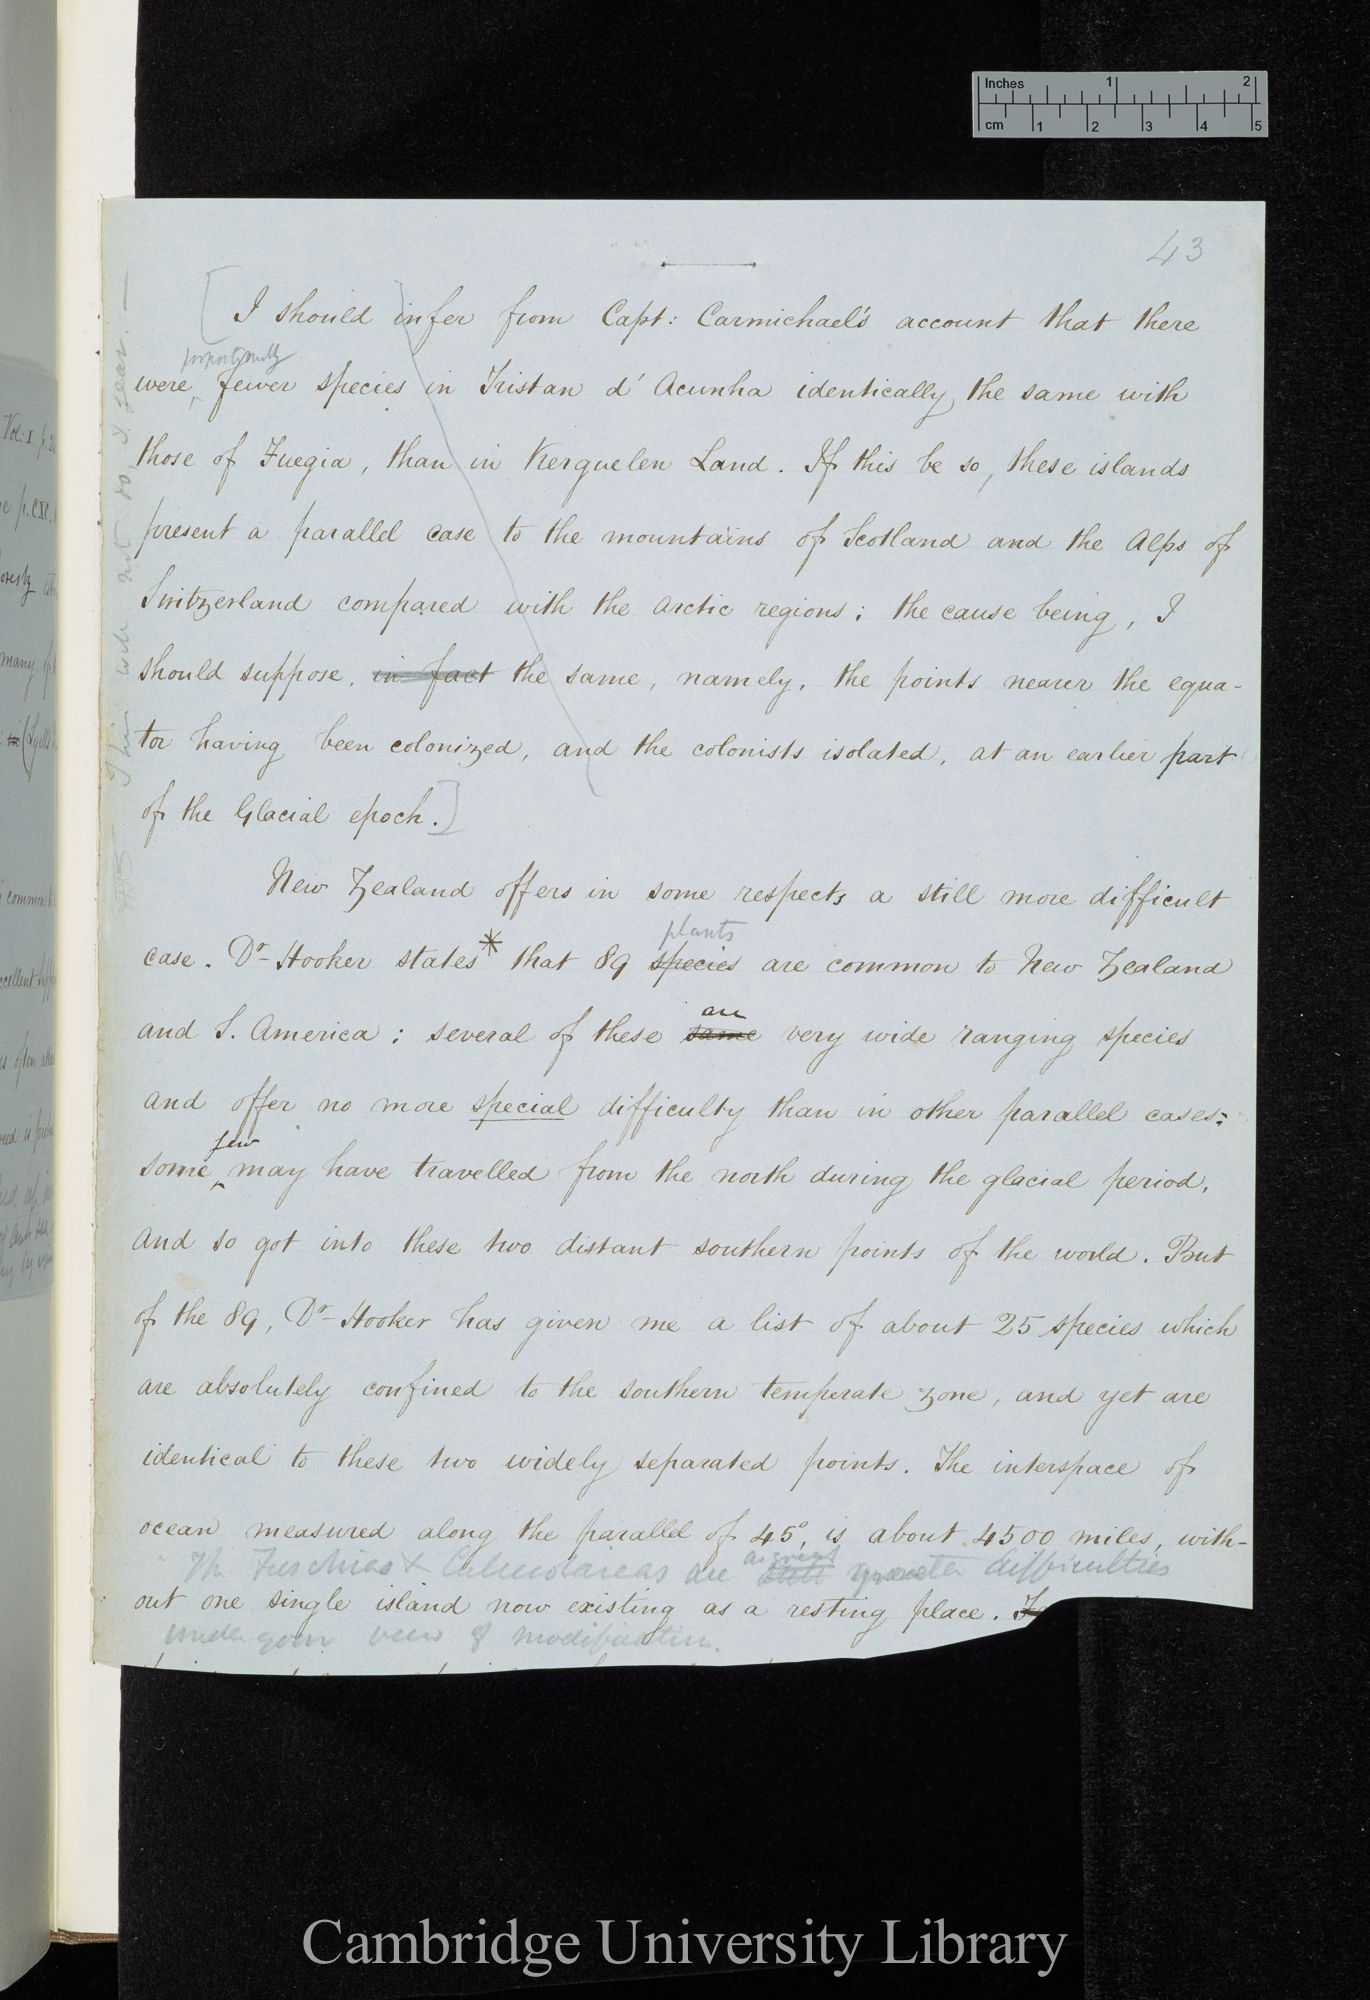 Inches 1 2
cm 1 2 3 4 5
43
[I should infer from Capt: Carmichael's account that there
proportionally
were, fewer species in Tristan d' Acunha identically the same with
those of Fuegia, than in Kerguelen Land. If this be so, these islands
present a parallel case to the mountains of Scotland and the Alps of
Switzerland compared with the arctic regions; the cause being, I
should suppose, in fact the same, namely, the points nearer the equa-
tor having been colonized, and the colonists isolated, at an earlier part
of the Glacial epoch.]
This will not do I fear. —
New Zealand offers in some respects a still more difficult
plants
case. Dr Hooker states* that 89 species are common to New Zealand
are
and S. America; several of these same very wide ranging species
and offer no more special difficulty than in other parallel cases:
few
some may have travelled from the north during the glacial period,
and so got into these two distant southern points of the world. But
of the 89, Dr Hooker has given me a list of about 25 species which
are absolutely confined to the southern temperate zone, and yet are
identical to these two widely separated points. The interspace of
ocean measured along the parallel of 45°, is about 4500 miles, with-
as great
The Fuschias & Calceolareas are still greater difficulties
out one single island now existing as a resting place.
under your view of modification.
Vol: I p.
p. CXC.
many
common
Cambridge University Library